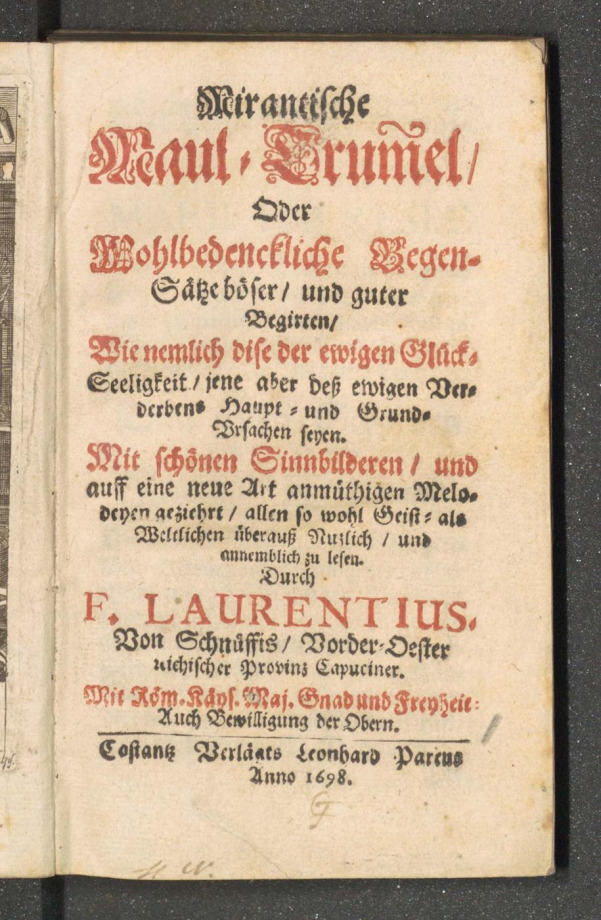 Mirantische
Maul-Trum̃el/
Oder
Wohlbedenckliche Gegen-
Sätze böser/ und guter
Begirten/
Wie nemlich dise der ewigen Glück-
Seeligkeit/ jene aber deß ewigen Ver-
derbens Haupt- und Grund-
Vrsachen seyen.
Mit schönen Sinnbilderen/ und
auff eine neue Art anmüthigen Melo-
deyen geziehrt/ allen so wohl Geist- als
Weltlichen überauß Nutzlich/ und
annemblich zu lesen.
Durch
F. LAURENTIUS.
Von Schnüffis/ Vorder-Oester
reichischer Provinz Capuciner.
Mit Röm. Käys. Maj. Gnad und Freyheit:
Auch Bewilligung der Obern.
Costantz Verlägts Leonhard Parcus
Anno 1698.